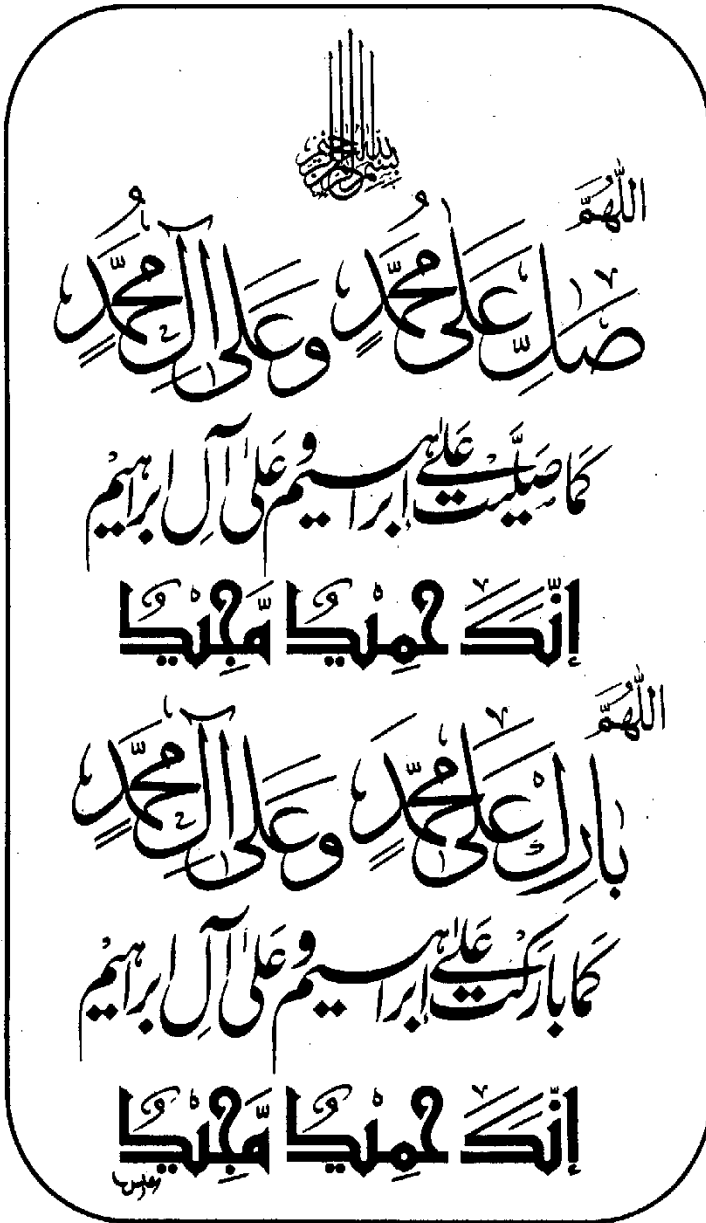 بسم الله الرحمن الرحيم
اللّٰهُمَّ
صَلِّ عَلٰى مُحَمَّدٍ وَعَلٰى آلِ مُحَمَّدٍ
كَمَا صَلَّيْتَ عَلٰى إِبْرَاهِيْمَ وَعَلٰى آلِ إِبْرَاهِيْمَ
إِنَّكَ حَمِيْدٌ مَّجِيْدٌ
اللّٰهُمَّ
بَارِكْ عَلٰى مُحَمَّدٍ وَعَلٰى آلِ مُحَمَّدٍ
كَمَا بَارَكْتَ عَلٰى إِبْرَاهِيْمَ وَعَلٰى آلِ إِبْرَاهِيْمَ
إِنَّكَ حَمِيْدٌ مَّجِيْدٌ